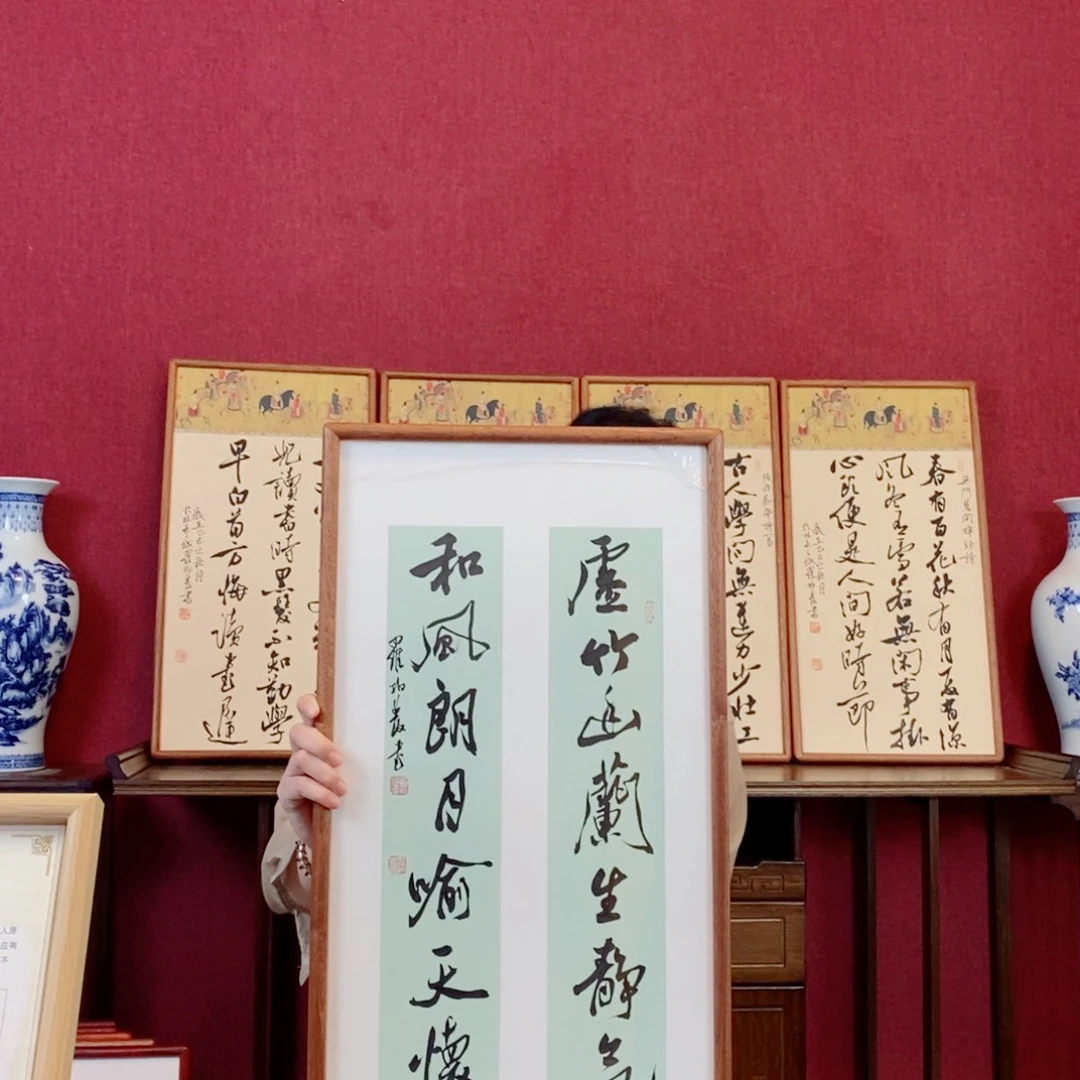 虛竹幽蘭生靜氣
和風朗月喻天懷
無門慧開禪師詩
春有百花秋有月夏有涼
風冬有雪若無閑事掛
心頭便是人間好時節
古人學問無遺力少壯工
兒讀書時黑髮不知勤學
早白首方悔讀書遲
应有
不